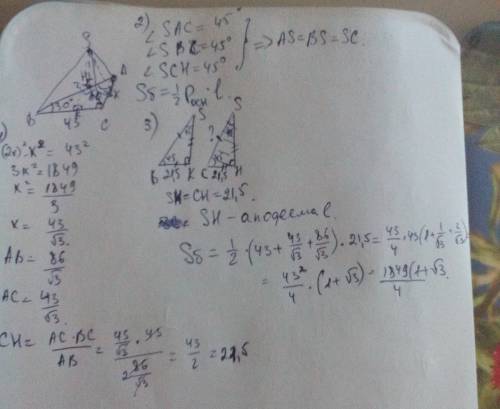 2) ∠SAC = 45°
∠SBC = 45°
∠SCH = 45°
} => AS = BS = SC.
Sб = 1/2 Pосн · l.
S
A
B
C
30°
43
(2x)² - x² = 43²
3x² = 1849
x² = 1849/3
x = 43/√3.
AB = 86/√3
AC = 43/√3.
CH = AC·BC/AB = (43/√3 · 43)/(86/√3) = 43/2 = 21,5
3)
S S
?
45 45
B 21,5 K C 21,5 H
SH = CH = 21,5.
SH - апофема l.
Sб = 1/2 · (43 + 43/√3 + 86/√3) · 21,5 = 43/4 · 43(1 + 1/√3 + 2/√3)
= 43²/4 · (1 + √3) = 1849(1 + √3/4